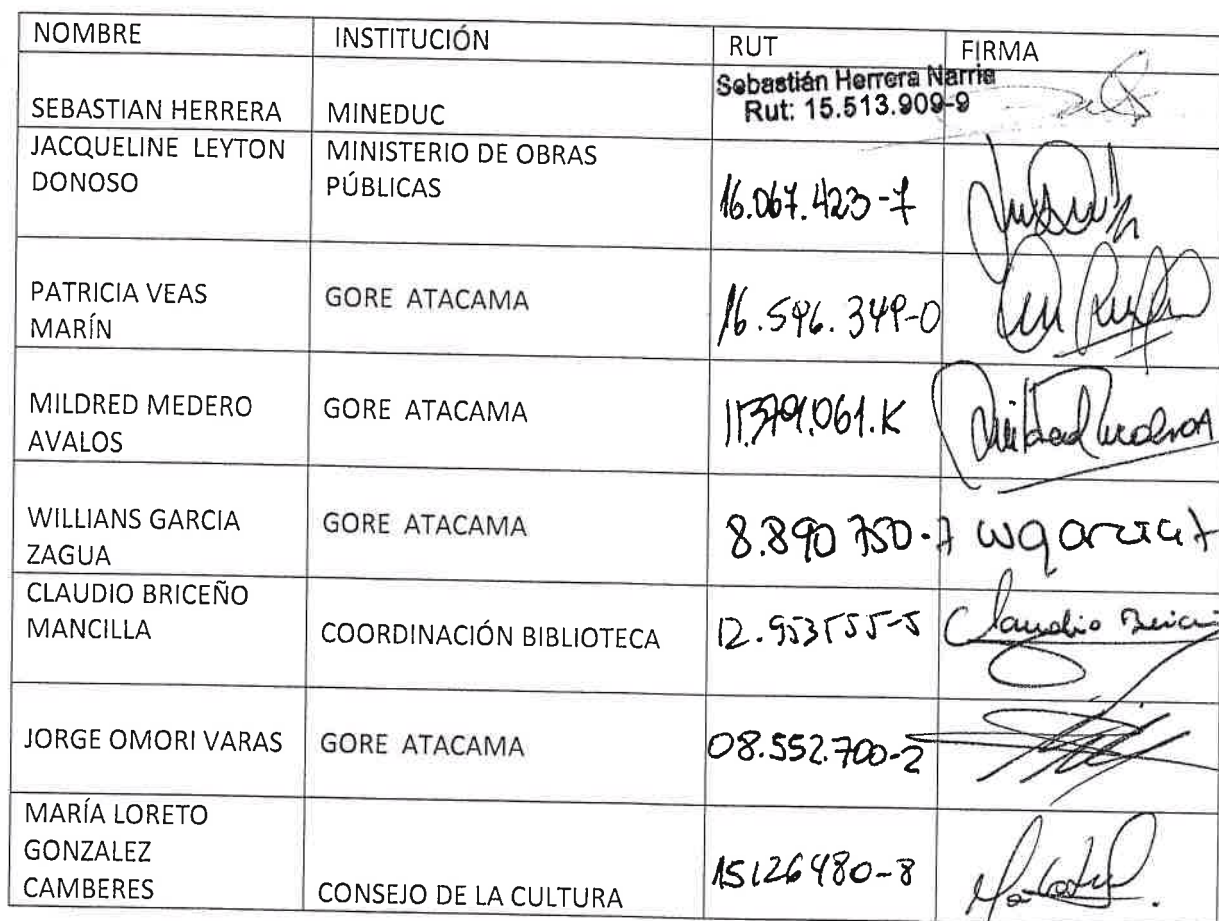 NOMBRE INSTITUCIÓN RUT FIRMA
Sebastián Herrera Narria
Rut: 15.513.909-9
SEBASTIAN HERRERA MINEDUC
JACQUELINE LEYTON
DONOSO
MINISTERIO DE OBRAS
PÚBLICAS
16.067.423-7
PATRICIA VEAS
MARÍN
GORE ATACAMA
MILDRED MEDERO
AVALOS
GORE ATACAMA
WILLIANS GARCIA
ZAGUA
GORE ATACAMA
8.890 750-7
CLAUDIO BRICEÑO
MANCILLA
COORDINACIÓN BIBLIOTECA
12.953555-5
Claudio
JORGE OMORI VARAS GORE ATACAMA 08.552.700-2
MARÍA LORETO
GONZALEZ
CAMBERES
CONSEJO DE LA CULTURA
15126480-8